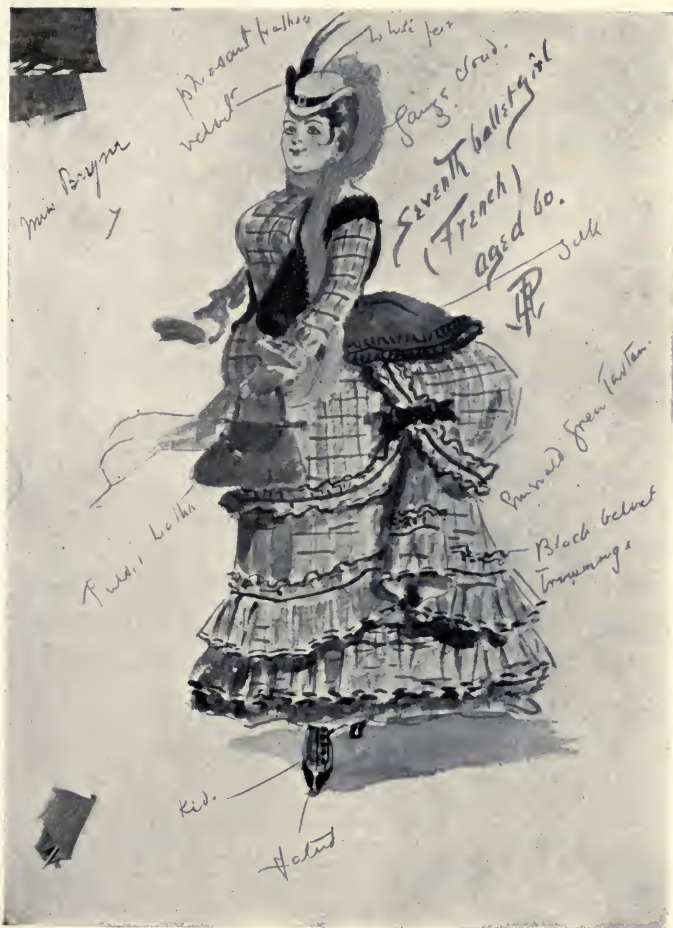 pheasant feather
velvet
white fur
gauze cloud.
3.
Miss Bryne
Seventh ballet girl
(French)
aged 60.
silk
Emerald Green Tartan.
Black velvet
trimmings
leather
Kid.
Patent